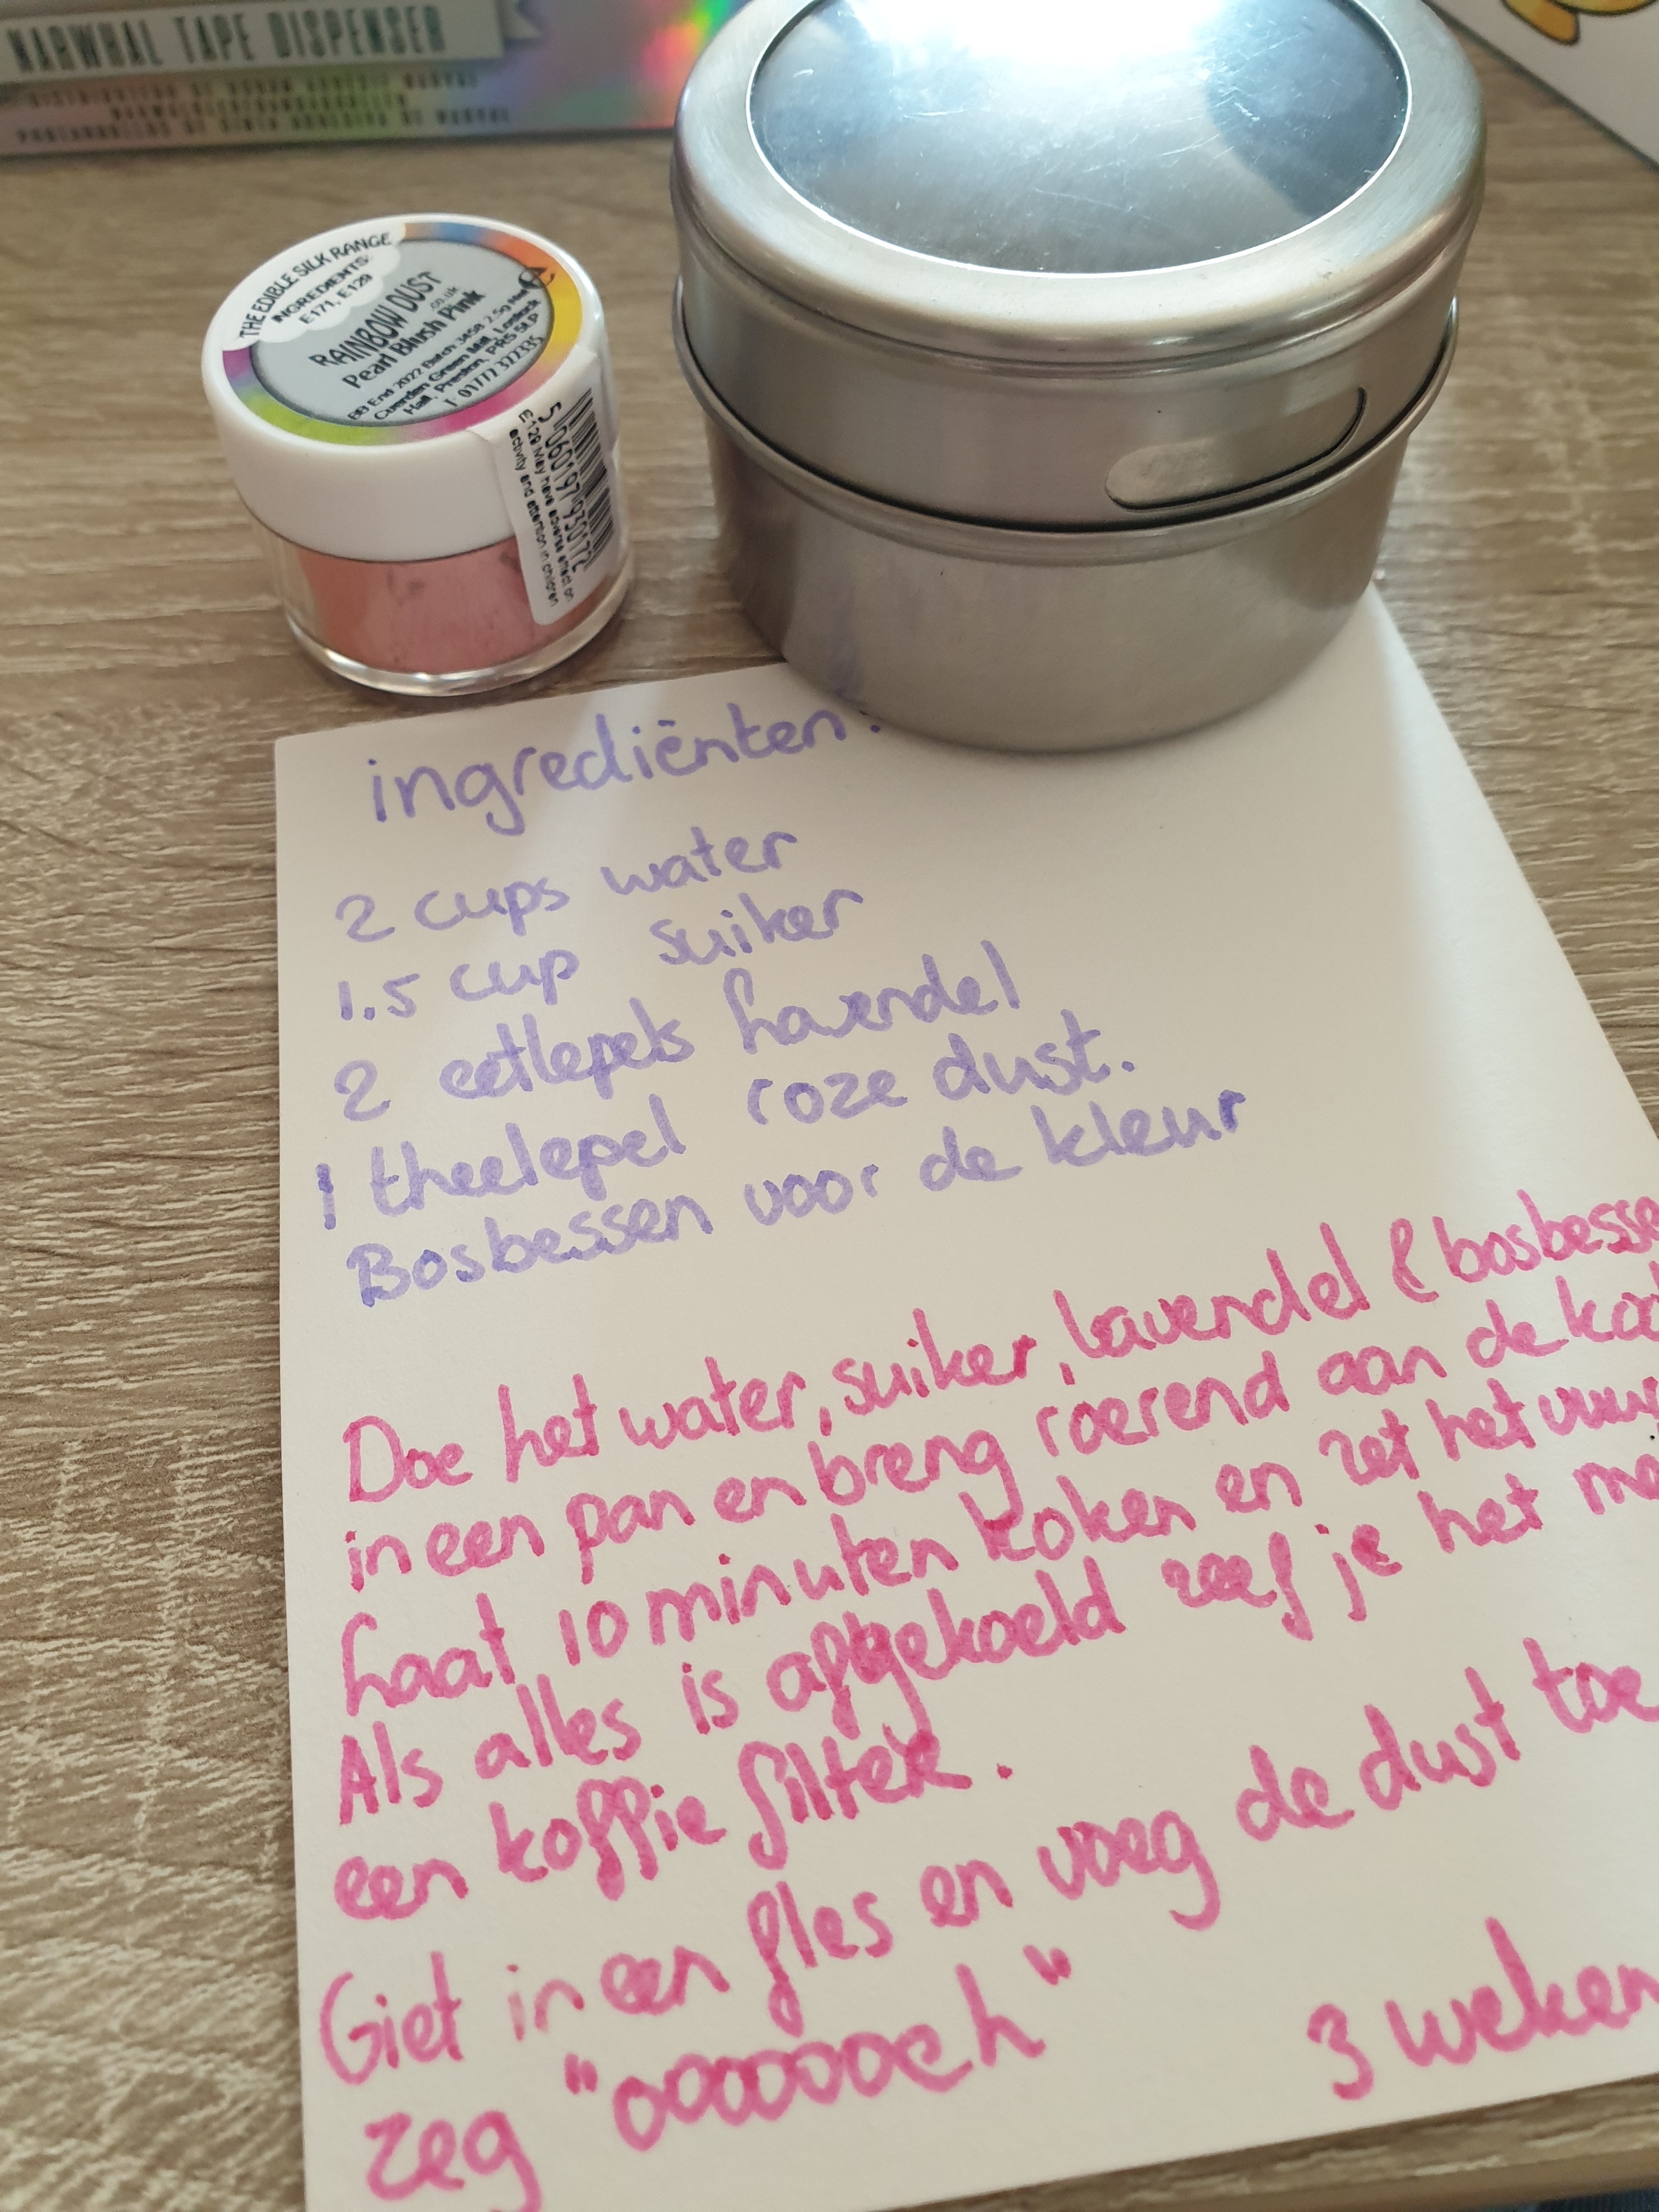 NARWHAL TAPE DISPENSER
THE EDIBLE SILK RANGE
INGREDIENTS:
E171, E129
RAINBOW DUST
.co.uk
Pearl Blush Pink
BB End 2022 Batch 3458 2.5g
Cuerden Green Mill, Lostock
Hall, Preston, PR5 5LP
T 01772 322335
5 060197 930172
E129 May have adverse effect on
activity and attention in children
ingrediënten:
2 cups water
1.5 cup suiker
2 eetlepels lavendel
1 theelepel roze dust.
Bosbessen voor de kleur
Doe het water, suiker, lavendel & bosbesse
in een pan en breng roerend aan de
Laat 10 minuten koken en zet het vuur
Als alles is afgekoeld zeef je het me
een koffie filter.
Giet in een fles en voeg de dust toe
zeg "oooooooeh"
3 weken